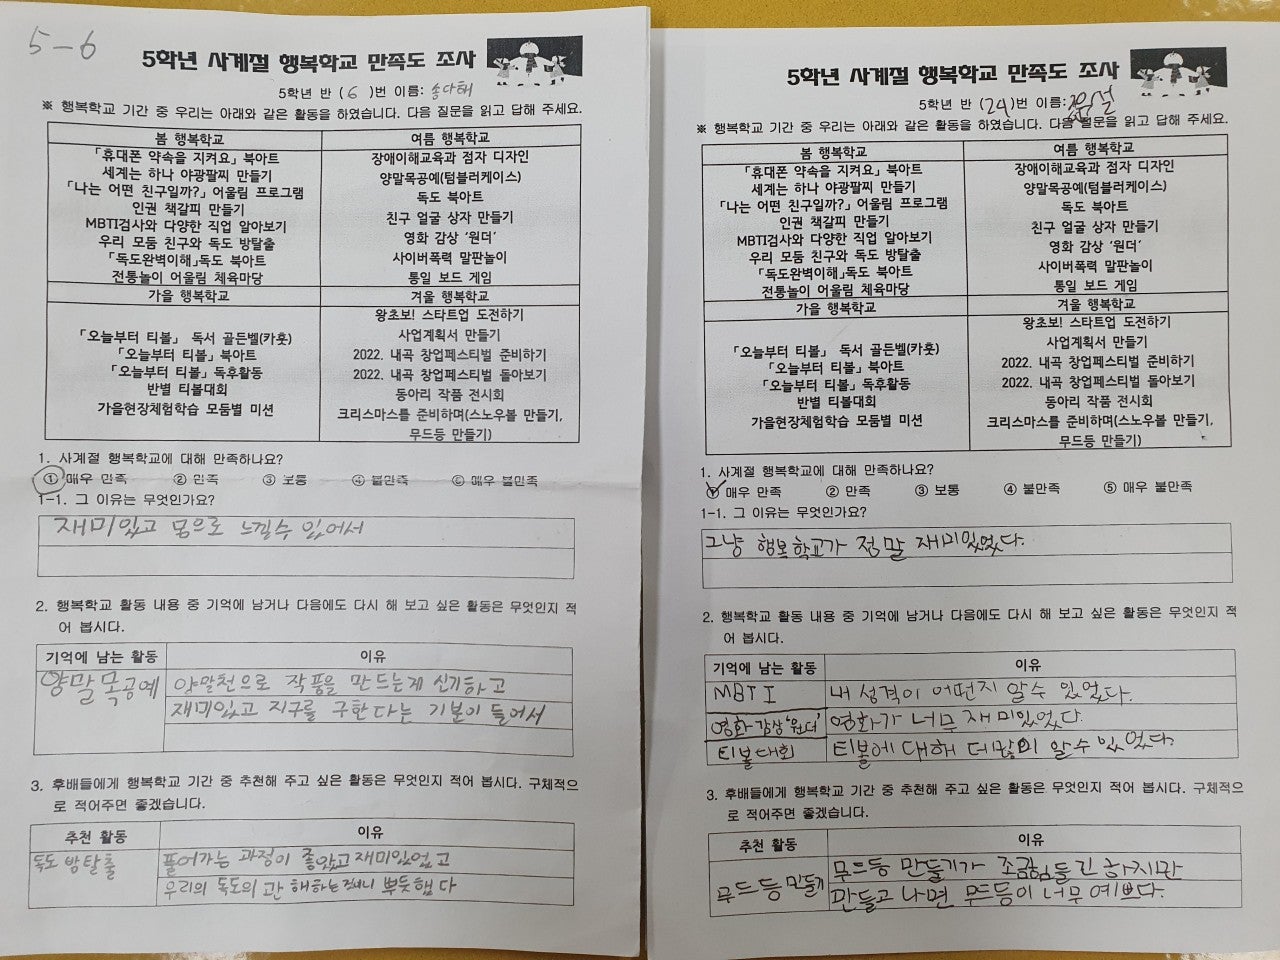 5-6
5학년 사계절 행복학교 만족도 조사
5학년 반 ( 6 )번 이름: 송다해
※ 행복학교 기간 중 우리는 아래와 같은 활동을 하였습니다. 다음 질문을 읽고 답해 주세요.
봄 행복학교
「휴대폰 약속을 지켜요」 북아트
세계는 하나 야광팔찌 만들기
「나는 어떤 친구일까?」 어울림 프로그램
인권 책갈피 만들기
MBTI검사와 다양한 직업 알아보기
우리 모둠 친구와 독도 방탈출
「독도완벽이해」독도 북아트
전통놀이 어울림 체육마당
여름 행복학교
장애이해교육과 점자 디자인
양말목공예(텀블러케이스)
독도 북아트
친구 얼굴 상자 만들기
영화 감상 '원더'
사이버폭력 말판놀이
통일 보드 게임
가을 행복학교
「오늘부터 티볼」 독서 골든벨(카훗)
「오늘부터 티볼」 북아트
「오늘부터 티볼」 독후활동
반별 티볼대회
가을현장체험학습 모둠별 미션
겨울 행복학교
왕초보! 스타트업 도전하기
사업계획서 만들기
2022. 내곡 창업페스티벌 준비하기
2022. 내곡 창업페스티벌 돌아보기
동아리 작품 전시회
크리스마스를 준비하며(스노우볼 만들기,
무드등 만들기)
1. 사계절 행복학교에 대해 만족하나요?
① 매우 만족 ② 만족 ③ 보통 ④ 불만족 ⑤ 매우 불만족
1-1. 그 이유는 무엇인가요?
재미있고 몸으로 느낄수 있어서
2. 행복학교 활동 내용 중 기억에 남거나 다음에도 다시 해 보고 싶은 활동은 무엇인지 적
어 봅시다.
기억에 남는 활동 이유
양말목공예 양말천으로 작품을 만드는게 신기하고
재미있고 지구를 구한다는 기분이 들어서
3. 후배들에게 행복학교 기간 중 추천해 주고 싶은 활동은 무엇인지 적어 봅시다. 구체적으
로 적어주면 좋겠습니다.
추천 활동 이유
독도 방탈출 풀어가는 과정이 좋았고 재미있었고
우리의 독도의 관해 하는 뿌듯했다
5학년 사계절 행복학교 만족도 조사
5학년 반 ( 24 )번 이름:
※ 행복학교 기간 중 우리는 아래와 같은 활동을 하였습니다. 다음 질문을 읽고 답해 주세요.
봄 행복학교
「휴대폰 약속을 지켜요」 북아트
세계는 하나 야광팔찌 만들기
「나는 어떤 친구일까?」 어울림 프로그램
인권 책갈피 만들기
MBTI검사와 다양한 직업 알아보기
우리 모둠 친구와 독도 방탈출
「독도완벽이해」독도 북아트
전통놀이 어울림 체육마당
여름 행복학교
장애이해교육과 점자 디자인
양말목공예(텀블러케이스)
독도 북아트
친구 얼굴 상자 만들기
영화 감상 '원더'
사이버폭력 말판놀이
통일 보드 게임
가을 행복학교
「오늘부터 티볼」 독서 골든벨(카훗)
「오늘부터 티볼」 북아트
「오늘부터 티볼」 독후활동
반별 티볼대회
가을현장체험학습 모둠별 미션
겨울 행복학교
왕초보! 스타트업 도전하기
사업계획서 만들기
2022. 내곡 창업페스티벌 준비하기
2022. 내곡 창업페스티벌 돌아보기
동아리 작품 전시회
크리스마스를 준비하며(스노우볼 만들기,
무드등 만들기)
1. 사계절 행복학교에 대해 만족하나요?
① 매우 만족 ② 만족 ③ 보통 ④ 불만족 ⑤ 매우 불만족
1-1. 그 이유는 무엇인가요?
그냥 행복학교가 정말 재미있었다.
2. 행복학교 활동 내용 중 기억에 남거나 다음에도 다시 해 보고 싶은 활동은 무엇인지 적
어 봅시다.
기억에 남는 활동 이유
MBTI 내 성격이 어떤지 알수 있었다.
영화감상'원더' 영화가 너무 재미있었다.
티볼대회 티볼에 대해 더많이 알수 있었다.
3. 후배들에게 행복학교 기간 중 추천해 주고 싶은 활동은 무엇인지 적어 봅시다. 구체적으
로 적어주면 좋겠습니다.
추천 활동 이유
무드등 만들기 무드등 만들기가 조금 힘들긴 하지만
만들고 나면 무드등이 너무 예쁘다.